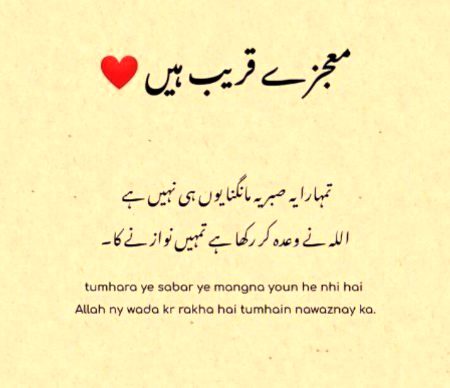 معجزے قریب ہیں ❤️
تمہارا یہ صبر یہ مانگنا یوں ہی نہیں ہے
اللہ نے وعدہ کر رکھا ہے تمہیں نوازنے کا۔
tumhara ye sabar ye mangna youn he nhi hai
Allah ny wada kr rakha hai tumhain nawaznay ka.